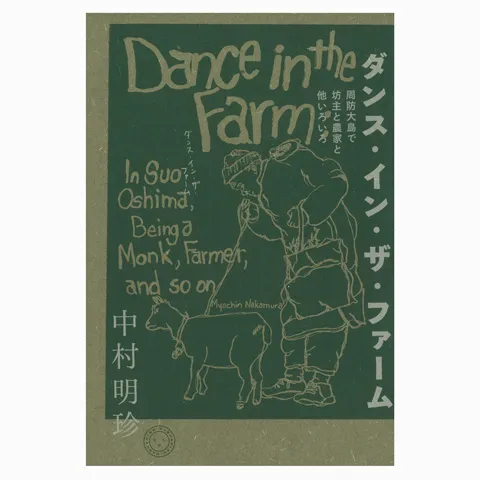 Dance in the
Farm
ダンス・イン・ザ・ファーム
周防大島で
坊主と農家と
他いろいろ
ダンス・イン・ザ
ファーム
In Suo-
Oshima,
Being a
Monk, Farmer,
and so on
Myochin Nakamura
中村明珍